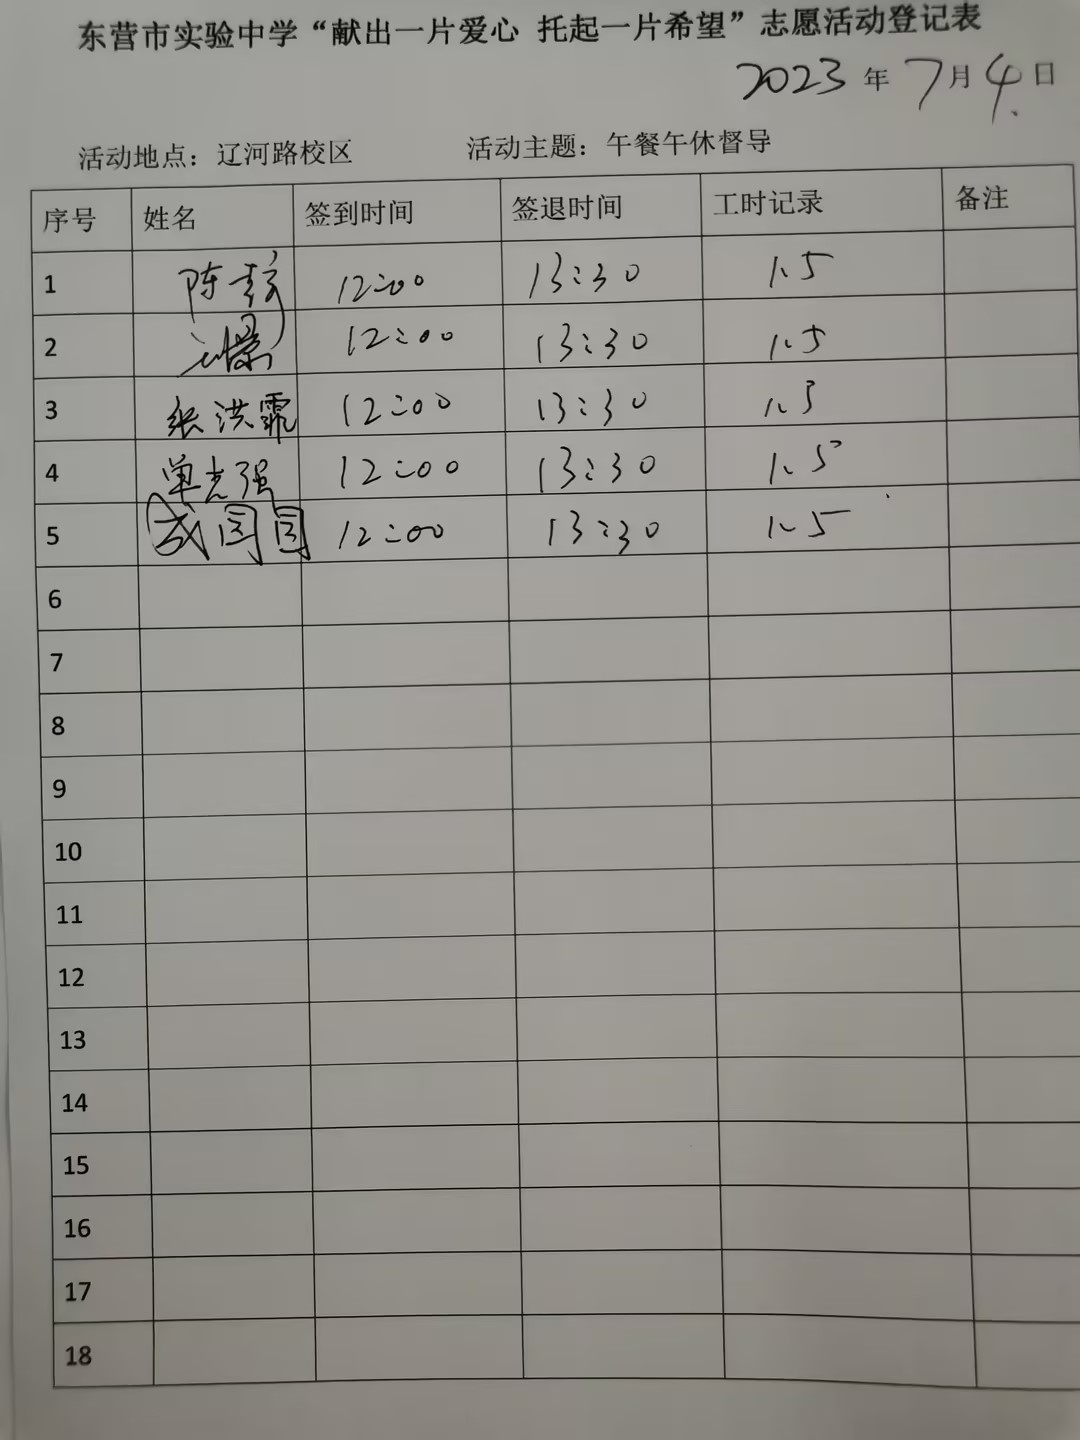 东营市实验中学“献出一片爱心 托起一片希望”志愿活动登记表
2023年7月4日
活动地点：辽河路校区 活动主题：午餐午休督导
序号 姓名 签到时间 签退时间 工时记录 备注
1 陈 12:00 13:30 1.5
2 12:00 13:30 1.5
3 张洪霏 12:00 13:30 1.5
4 单志强 12:00 13:30 1.5
5 12:00 13:30 1.5
6
7
8
9
10
11
12
13
14
15
16
17
18